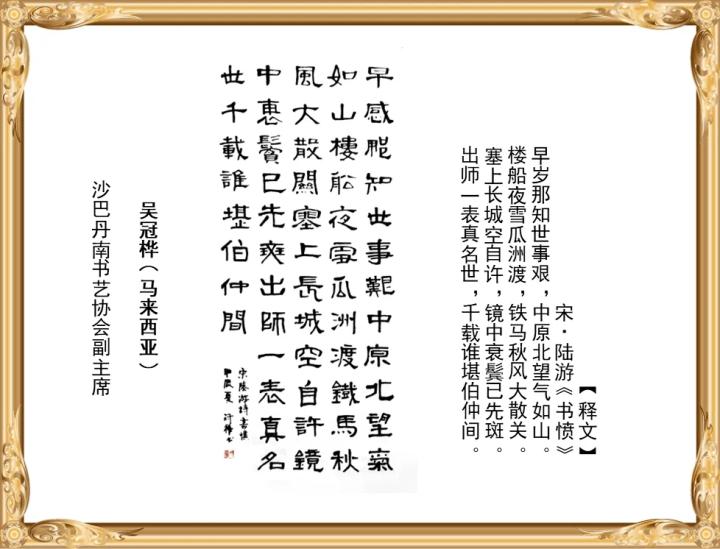 【释文】
宋·陆游《书愤》
早岁那知世事艰，中原北望气如山。
楼船夜雪瓜洲渡，铁马秋风大散关。
塞上长城空自许，镜中衰鬓已先斑。
出师一表真名世，千载谁堪伯仲间。
早歲那知世事艱中原北望氣
如山樓船夜雪瓜洲渡鐵馬秋
風大散關塞上長城空自許鏡
中衰鬢已先斑出師一表真名
世千載誰堪伯仲間
宋陸游詩書憤
甲辰夏冠樺書
吴冠桦（马来西亚）
沙巴丹南书艺协会副主席